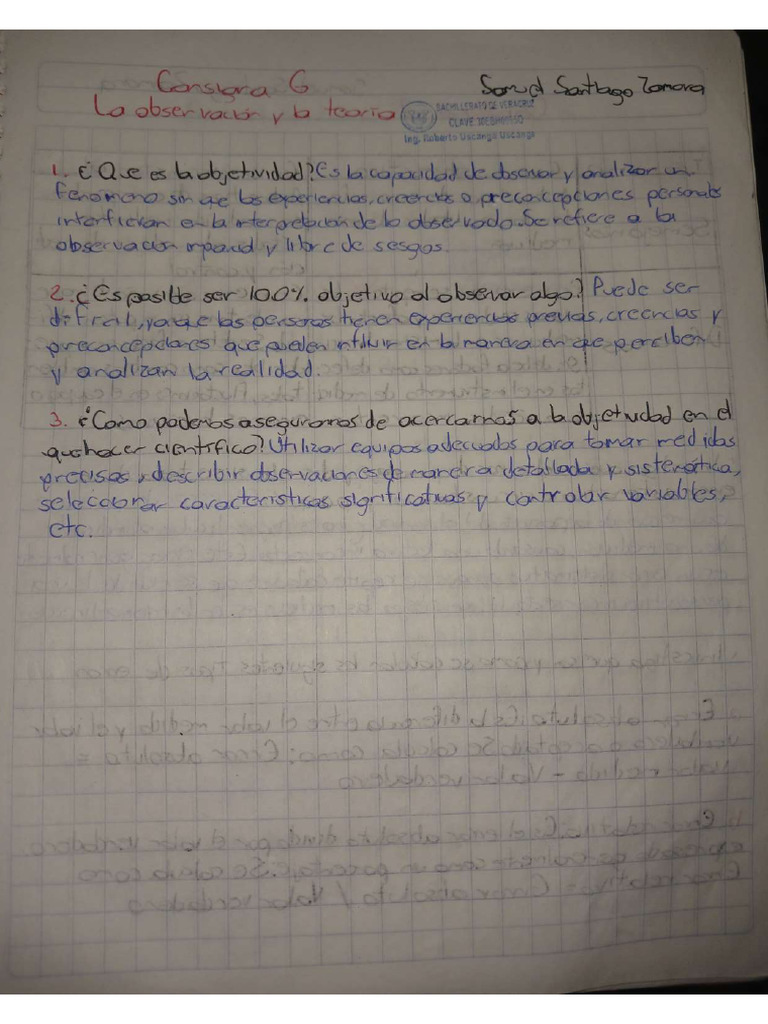 Consigna 6
Samuel Santiago Zamora
La observación y la teoría
BACHILLERATO DE VERACRUZ
CLAVE
Ing. Roberto Uscanga Uscanga
1. ¿Que es la objetividad? Es la capacidad de observar y analizar un
fenómeno sin que las experiencias, creencias o preconcepciones personales
interfieran en la interpretación de lo observado. Se refiere a la
observación imparcial y libre de sesgos.
2. ¿Es posible ser 100% objetivo al observar algo? Puede ser
difícil, ya que las personas tienen experiencias previas, creencias y
preconcepciones que pueden influir en la manera en que perciben
y analizan la realidad.
3. ¿Como podemos asegurarnos de acercarnos a la objetividad en el
quehacer científico? Utilizar equipos adecuados para tomar medidas
precisas, describir observaciones de manera detallada y sistemática,
seleccionar características significativas y controlar variables,
etc.